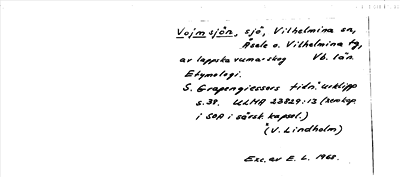 Vojmsjön, sjö, Vilhelmina sn,
Åsele o. Vilhelmina tg,
av lappska vuma: skog Vb. län.
Etymologi.
S. Grapengiessers tidn. urklipp
s. 38. ULMA 23829:13 (xerokop.
i SOA i särsk. kapsel.)
(V. Lindholm)
Exc. av E. L. 1968.